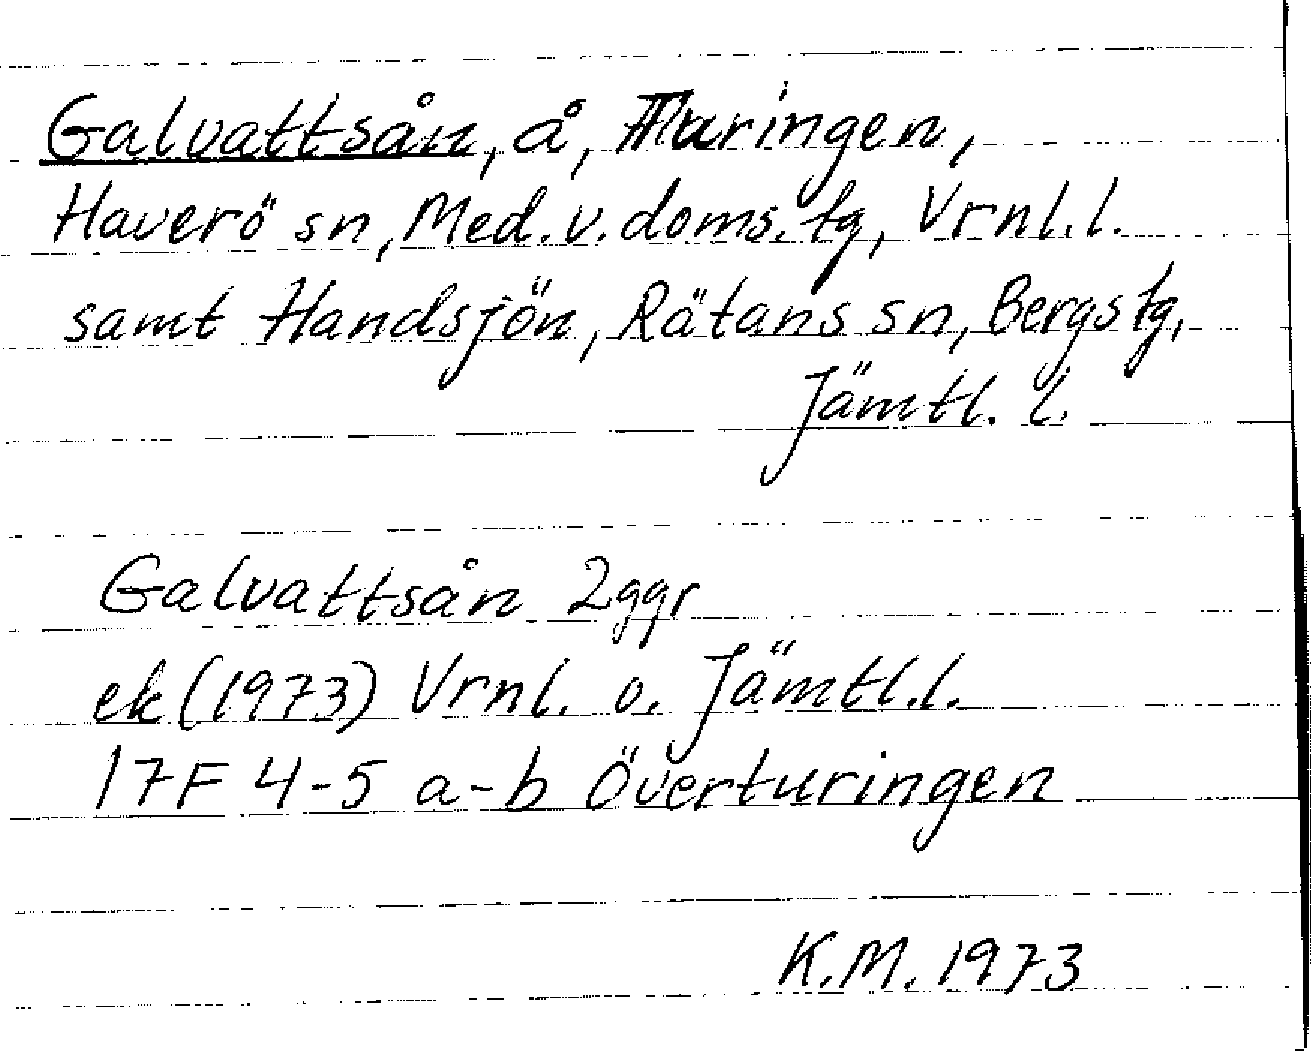 Galvattsån, å, Turingen,
Haverö sn, Med. v. doms. tg, Vrnl. l.
samt Handsjön, Rätans sn, Bergs tg,
Jämtl. l.
Galvattsån 2ggr
ek (1973) Vrnl. o. Jämtl. l.
17F 4-5 a-b Överturingen
K.M. 1973